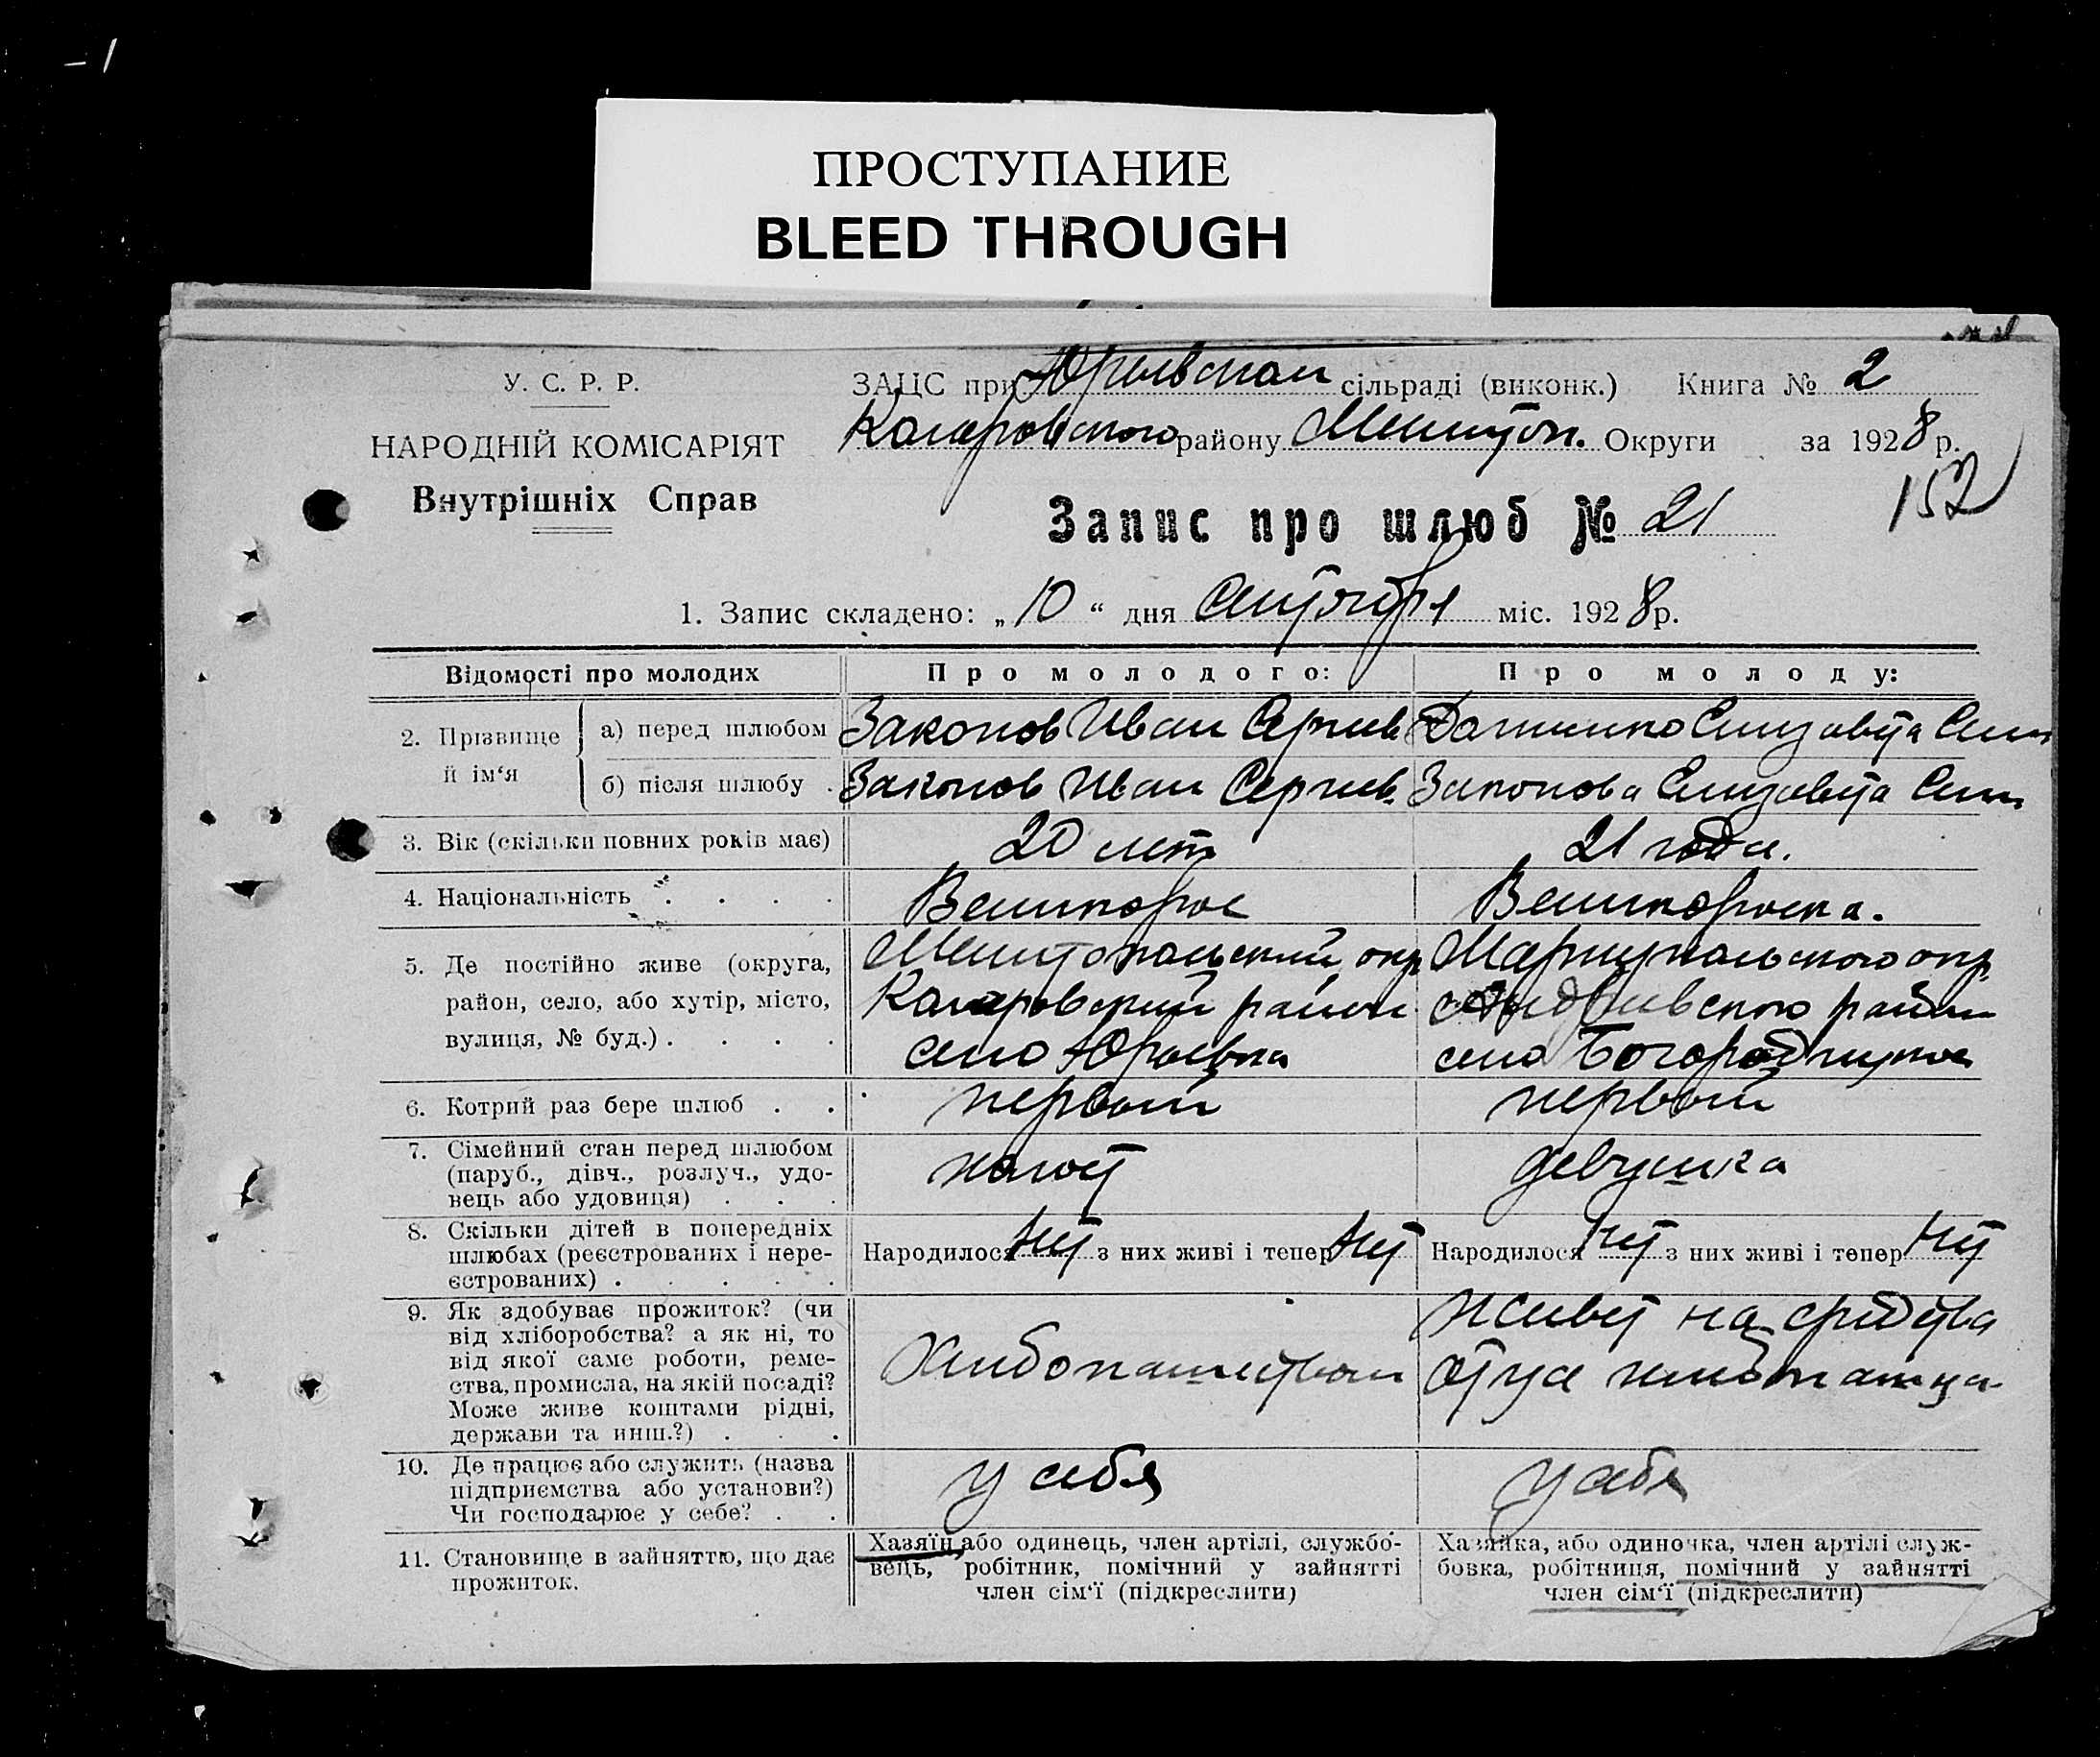 — 1
ПРОСТУПАНИЕ
BLEED THROUGH
У. С. Р. Р.
НАРОДНІЙ КОМІСАРІЯТ
Внутрішніх Справ
ЗАЦС при Юрьевском сільраді (виконк.) Книга № 2
району Мелитоп. Округи за 1928 р.
152
Запис про шлюб № 21
1. Запис складено: „ 10 “ дня Сентября міс. 1928 р.
Відомості про молодих Про молодого: Про молоду:
2. Прізвище й ім‘я
а) перед шлюбом Законов Иван Сергеев Елизавета Сем
б) після шлюбу . Законов Иван Сергеев. Законова Елизавета Сем
3. Вік (скільки повних років має) 20 лет 21 года.
4. Національність . . . . Великорос Великороска.
5. Де постійно живе (округа, район, село, або хутір, місто, вулиця, № буд.) . . . .
Мелитопольский окр Мариупольского окр
район района
село Юрьевка село Богородицкое
6. Котрий раз бере шлюб . . первый первый
7. Сімейний стан перед шлюбом
(паруб., дівч., розлуч., удо-
вець або удовиця) . . .
холост девушка
8. Скільки дітей в попередніх
шлюбах (реєстрованих і нере-
єстрованих) . . . . .
Народилося нет з них живі і тепер нет Народилося нет з них живі і тепер нет
9. Як здобуває прожиток? (чи
від хліборобства? а як ні, то
від якої саме роботи, реме-
ства, промисла, на якій посаді?
Може живе коштами рідні,
держави та инш.?) . . .
Хлебопашеством
Живет на средства
отца хлебопашца
10. Де працює або служить (назва
підприємства або установи?)
Чи господарює у себе? . .
у себя у себя
11. Становище в зайняттю, що дає
прожиток.
Хазяїн, або одинець, член артілі, службо-
вець, робітник, помічний у зайнятті
член сім‘ї (підкреслити)
Хазяйка, або одиночка, член артілі служ-
бовка, робітниця, помічний у зайнятті
член сім‘ї (підкреслити)